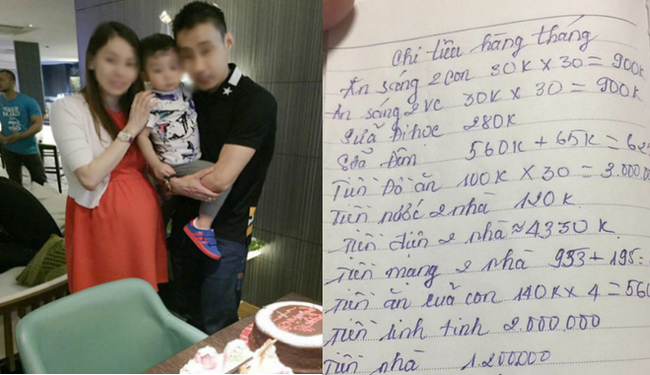 Chi tiêu hàng tháng
Ăn sáng 2 con 30K x 30 = 900K
Ăn sáng 2 VC 30K x 30 = 900K
Sữa Đi học 280K
Sữa Đêm 560K + 65K = 62
Tiền Đồ ăn 100K x 30 = 3.000.00
Tiền nước 2 nhà 120K
Tiền điện 2 nhà ≈ 4330 K
Tiền mạng 2 nhà 953 + 195
Tiền ăn của con 140K x 4 = 560
Tiền linh tinh 2.000.000
Tiền nhà 1.200.000